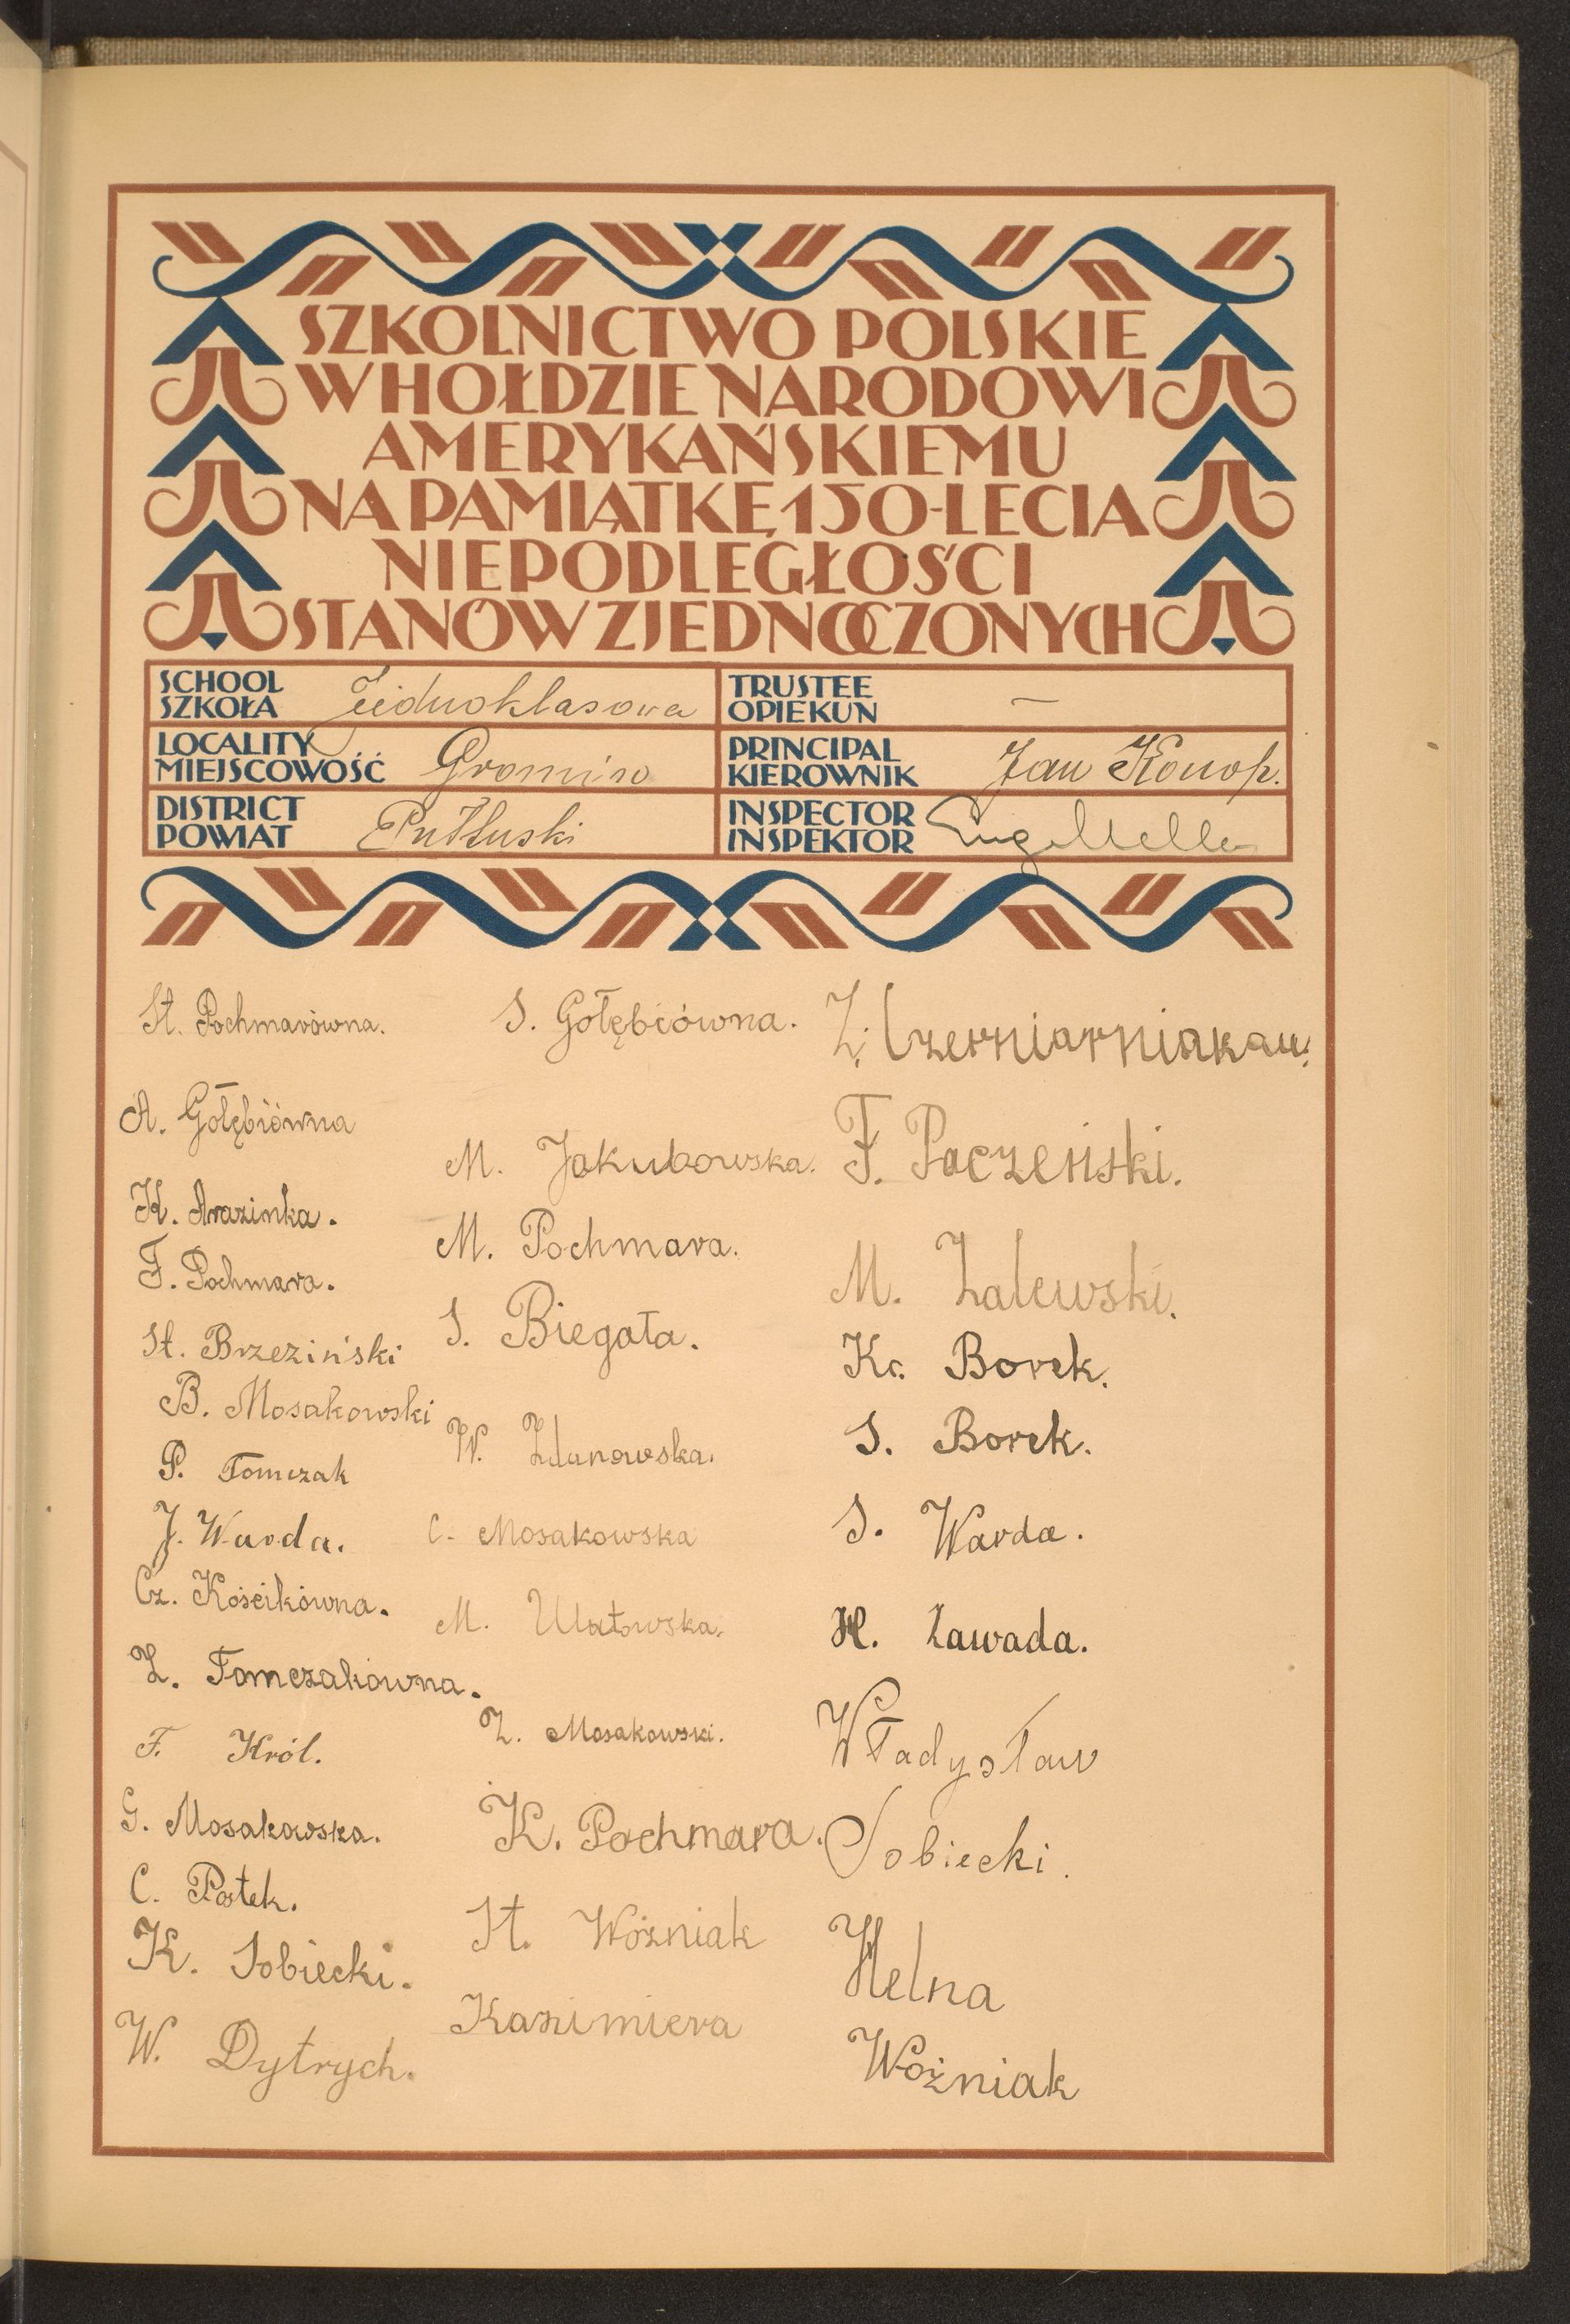 SZKOLNICTWO POLSKIE
W HOŁDZIE NARODOWI
AMERYKAŃSKIEMU
NA PAMIĄTKĘ 150-LECIA
NIEPODLEGŁOŚCI
STANÓW ZJEDNOCZONYCH
SCHOOL
SZKOŁA
Jednoklasowa
LOCALITY
MIEJSCOWOŚĆ
Gromin
DISTRICT
POWIAT
Pułtuski
TRUSTEE
OPIEKUN
—
PRINCIPAL
KIEROWNIK
Jan Konop.
INSPECTOR
INSPEKTOR
St. Pochmarówna.
A. Gołębiówna
K. Arazinka.
F. Pochmara.
St. Brzeziński
B. Mosakowski
P. Tomczak
J. Warda.
Cz. Kościkówna.
Z. Tomczakówna.
F. Król.
G. Mosakowska.
C. Potek.
K. Sobiecki.
W. Dytrych.
S. Gołębiówna.
M. Jakubowska.
M. Pochmara.
S. Biegała.
W. Zdanowska.
C. Mosakowska
M. Ulatowska.
Z. Mosakowski.
K. Pochmara.
St. Woźniak
Kazimiera
Z. Czerniarniakau.
F. Paczeński.
M. Zalewski.
Kc. Borek.
S. Borek.
S. Warda.
H. Zawada.
Władysław
Sobiecki.
Helna
Woźniak